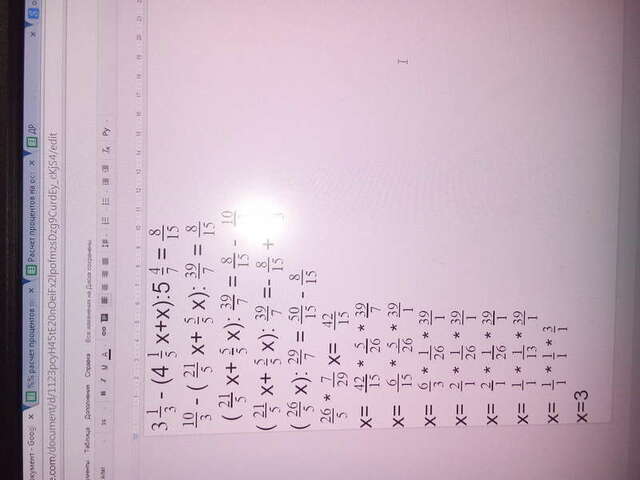 %% расчет процентов
Расчет процентов на
ДР
.com/document/d/1123pcyH45tE20nOeIFx2lpoImzsDzg9CurdEy_eKJS4/edit
Таблица Дополнения Справка Все изменения на Диске сохранены
3 1/3 - (4 1/5 x+x):5 4/7 = 8/15
10/3 - (21/5 x+ 5/5 x): 39/7 = 8/15
(21/5 x+ 5/5 x): 39/7 = 8/15 - 10
(21/5 x+ 5/5 x): 39/7 =- 8/15 +
(26/5 x): 29/7 = 50/15 - 8/15
26/5 * 7/29 x= 42/15
x= 42/15 * 5/26 * 39/7
x= 6/15 * 5/26 * 39/1
x= 6/3 * 1/26 * 39/1
x= 2/1 * 1/26 * 39/1
x= 2/1 * 1/26 * 39/1
x= 1/1 * 1/13 * 39/1
x= 1/1 * 1/1 * 3/1
x=3